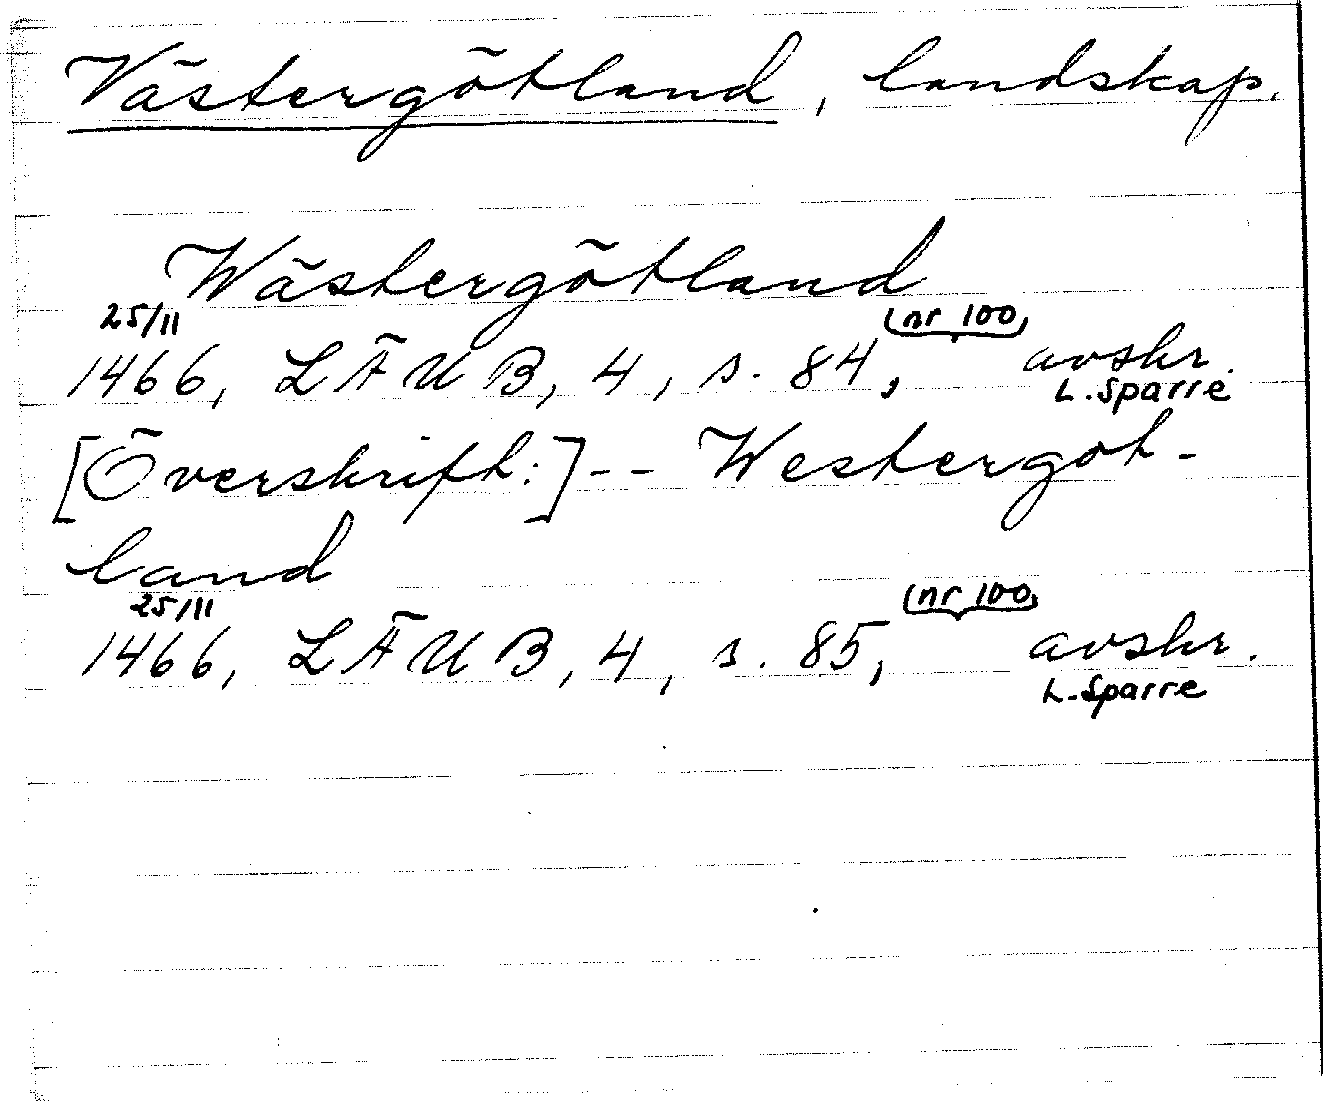 Västergötland, landskap.
Wästergötland
25/11 (nr 100)
1466, LÄUB, 4, s. 84, avskr.
L. Sparre
[Överskrift:] -- Westergot-
land
25/11 (nr 100)
1466, LÄUB, 4, s. 85, avskr.
L. Sparre